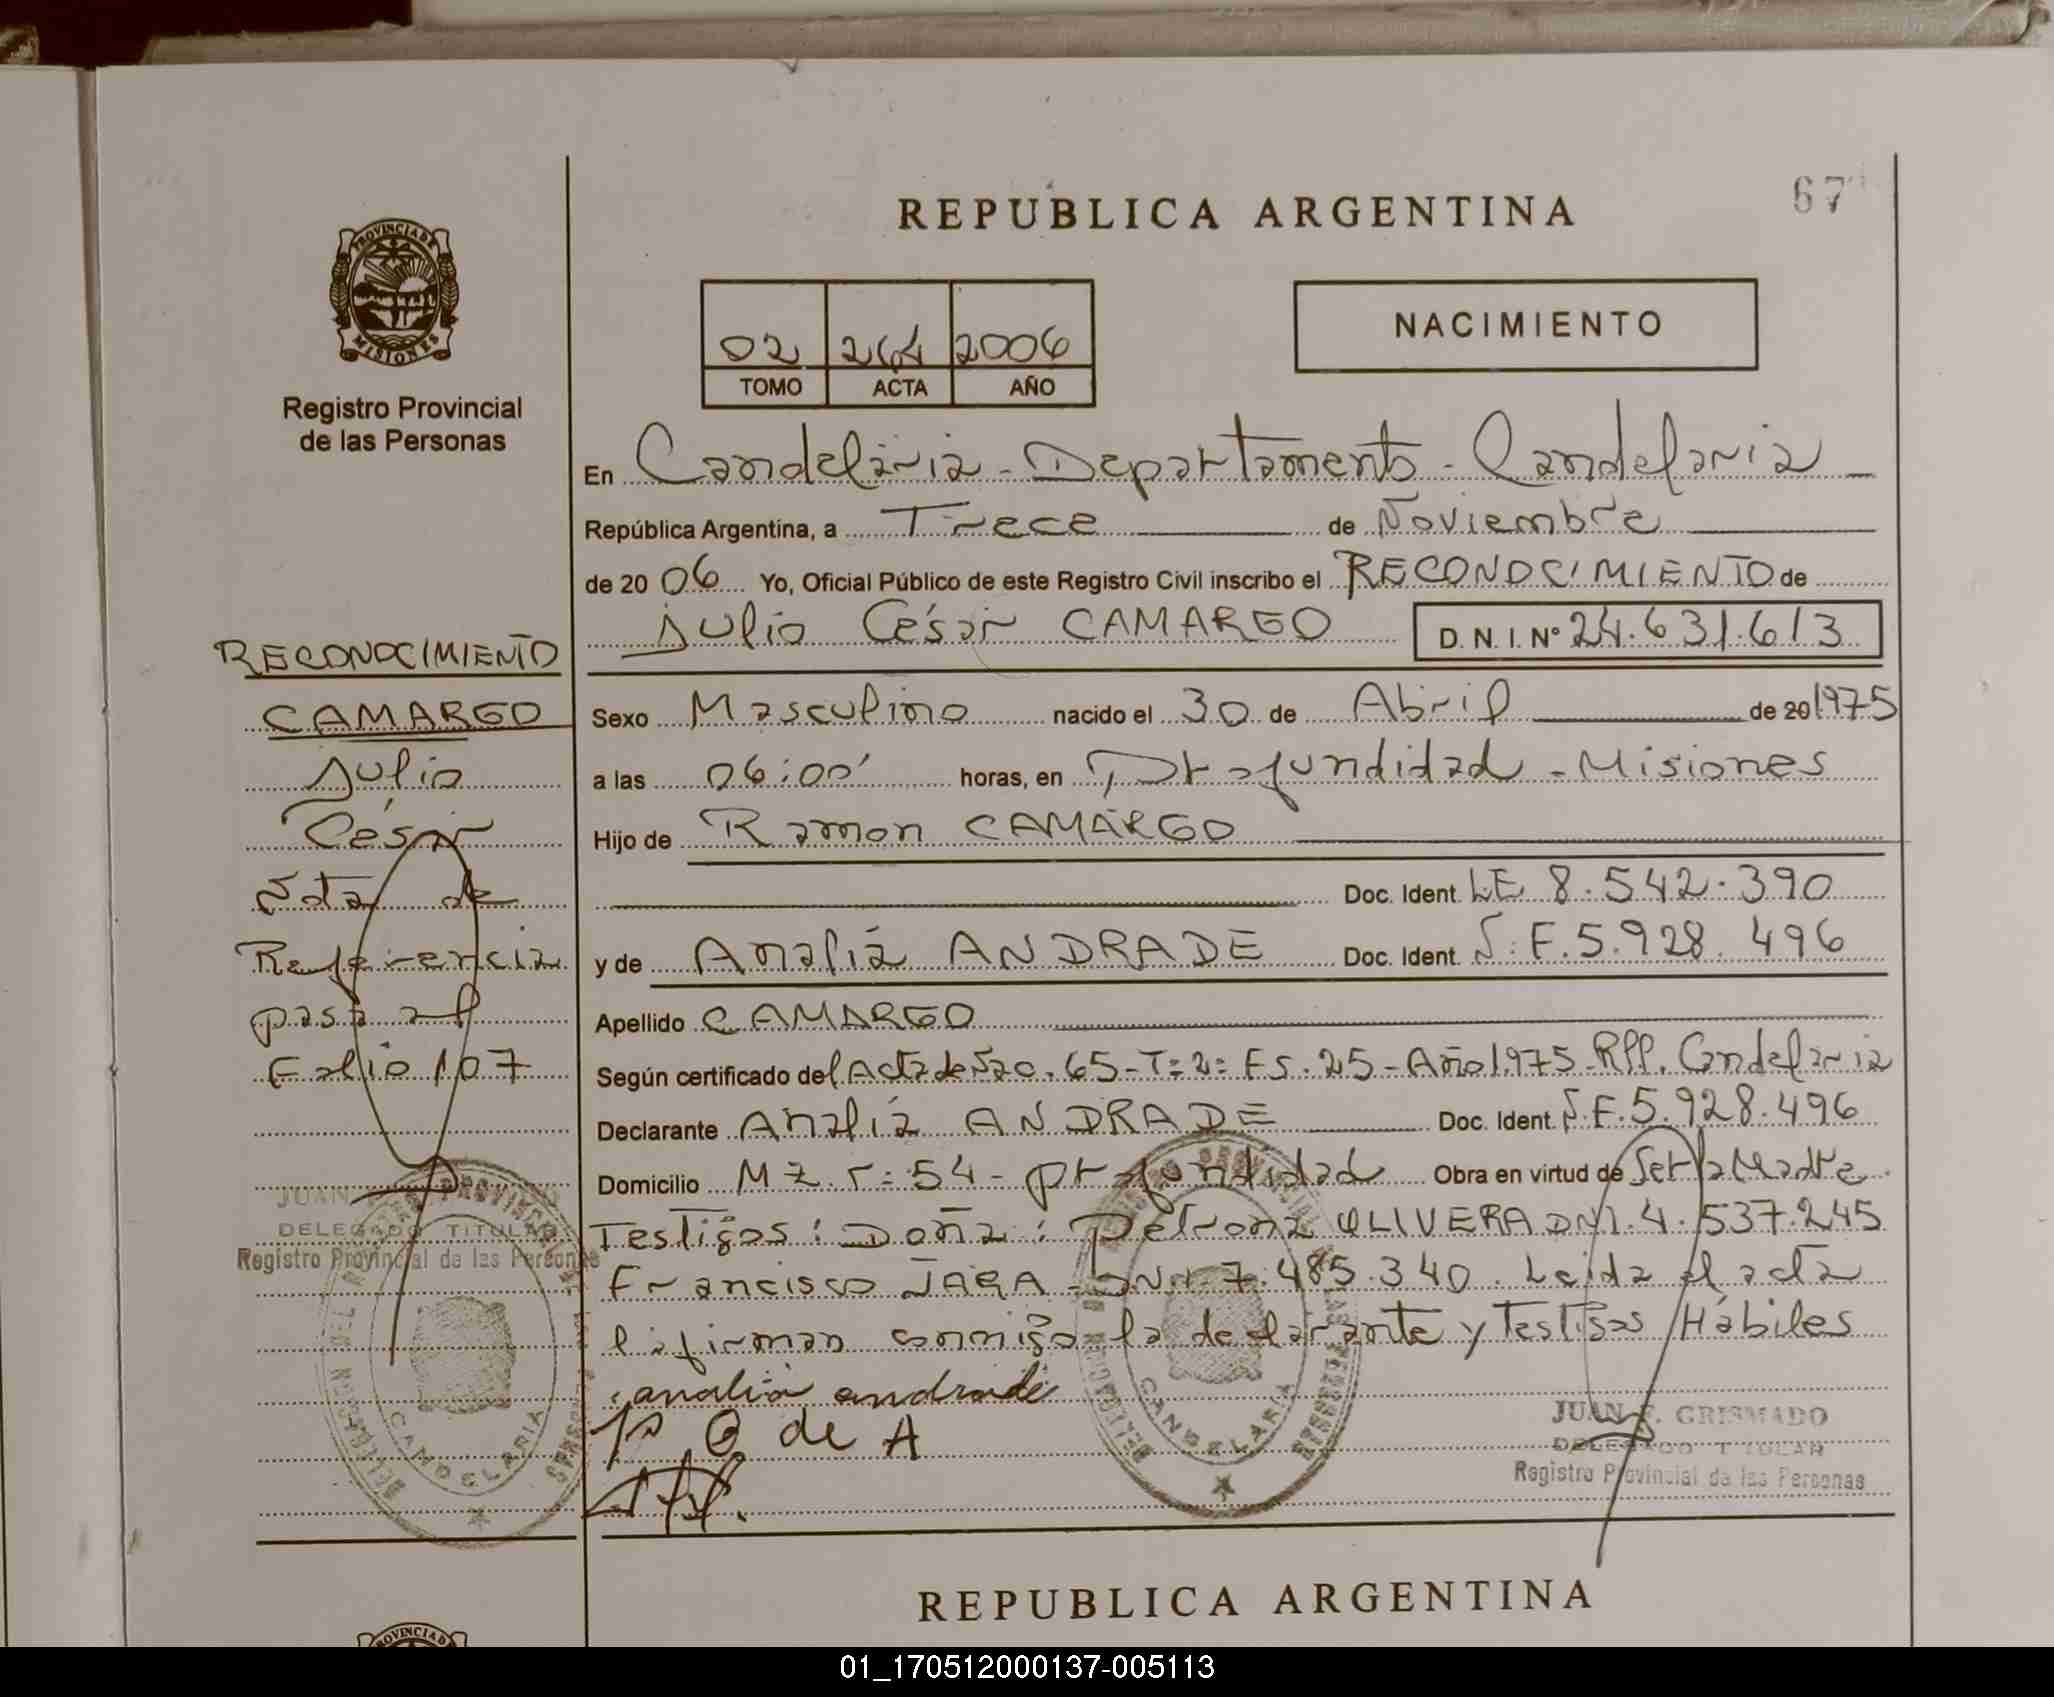 67
REPUBLICA ARGENTINA
PROVINCIA DE
MISIONES
Registro Provincial
de las Personas
02 264 2006
TOMO ACTA AÑO
NACIMIENTO
En Candelaria - Departamento - Candelaria
República Argentina, a Trece de Noviembre
de 20 06 Yo, Oficial Público de este Registro Civil inscribo el RECONOCIMIENTO de
Julio César CAMARGO D. N. I. Nº 24.631.613
RECONOCIMIENTO
CAMARGO
Julio
César
Nota de
Referencia
pasa al
Folio 107
Sexo Masculino nacido el 30 de Abril de 20 1975
a las 06:00' horas, en Profundidad - Misiones
Hijo de Ramon CAMARGO
Doc. Ident. LE 8.542.390
y de Analía ANDRADE Doc. Ident. F.5.928.496
Apellido CAMARGO
Según certificado del Acta de Nac. 65-T=2= Fs. 25-Año 1.975-RPP. Candelaria
Declarante Analía ANDRADE Doc. Ident. F.5.928.496
Domicilio MZ. 54 - profundidad Obra en virtud de Ser la Madre
Testigos: Doña: Petrona OLIVERA DNI. 4.537.245
Francisco JARA - DNI. 7.485.340. Leida el acta
la firman conmigo la declarante y Testigos Hábiles
analia andrade
P O de A
JUAN
DELEGADO TITULAR
Registro Provincial de las Personas
CANDELARIA
CANDELARIA
JUAN F. GRISMADO
DELEGADO TITULAR
Registro Provincial de las Personas
REPUBLICA ARGENTINA
PROVINCIA D
01_170512000137-005113